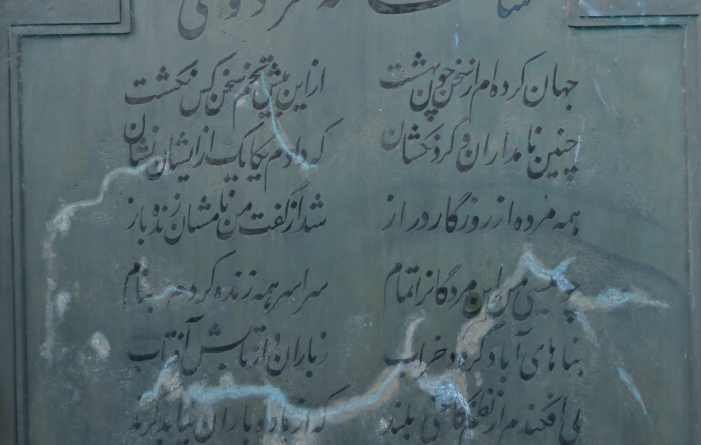 شاهنامه فردوسی
جهان کرده‌ام از سخن چون بهشت از این بیش تخم سخن کس نکشت
چنین نامداران و گردنکشان که دادم یکایک از ایشان نشان
همه مرده از روزگار دراز شد از گفت من نامشان زنده باز
چو عیسی من این مردگان را تمام سراسر همه زنده کردم بنام
بناهای آباد گردد خراب ز باران و از تابش آفتاب
پی افکندم از نظم کاخی بلند که از باد و باران نیابد گزند